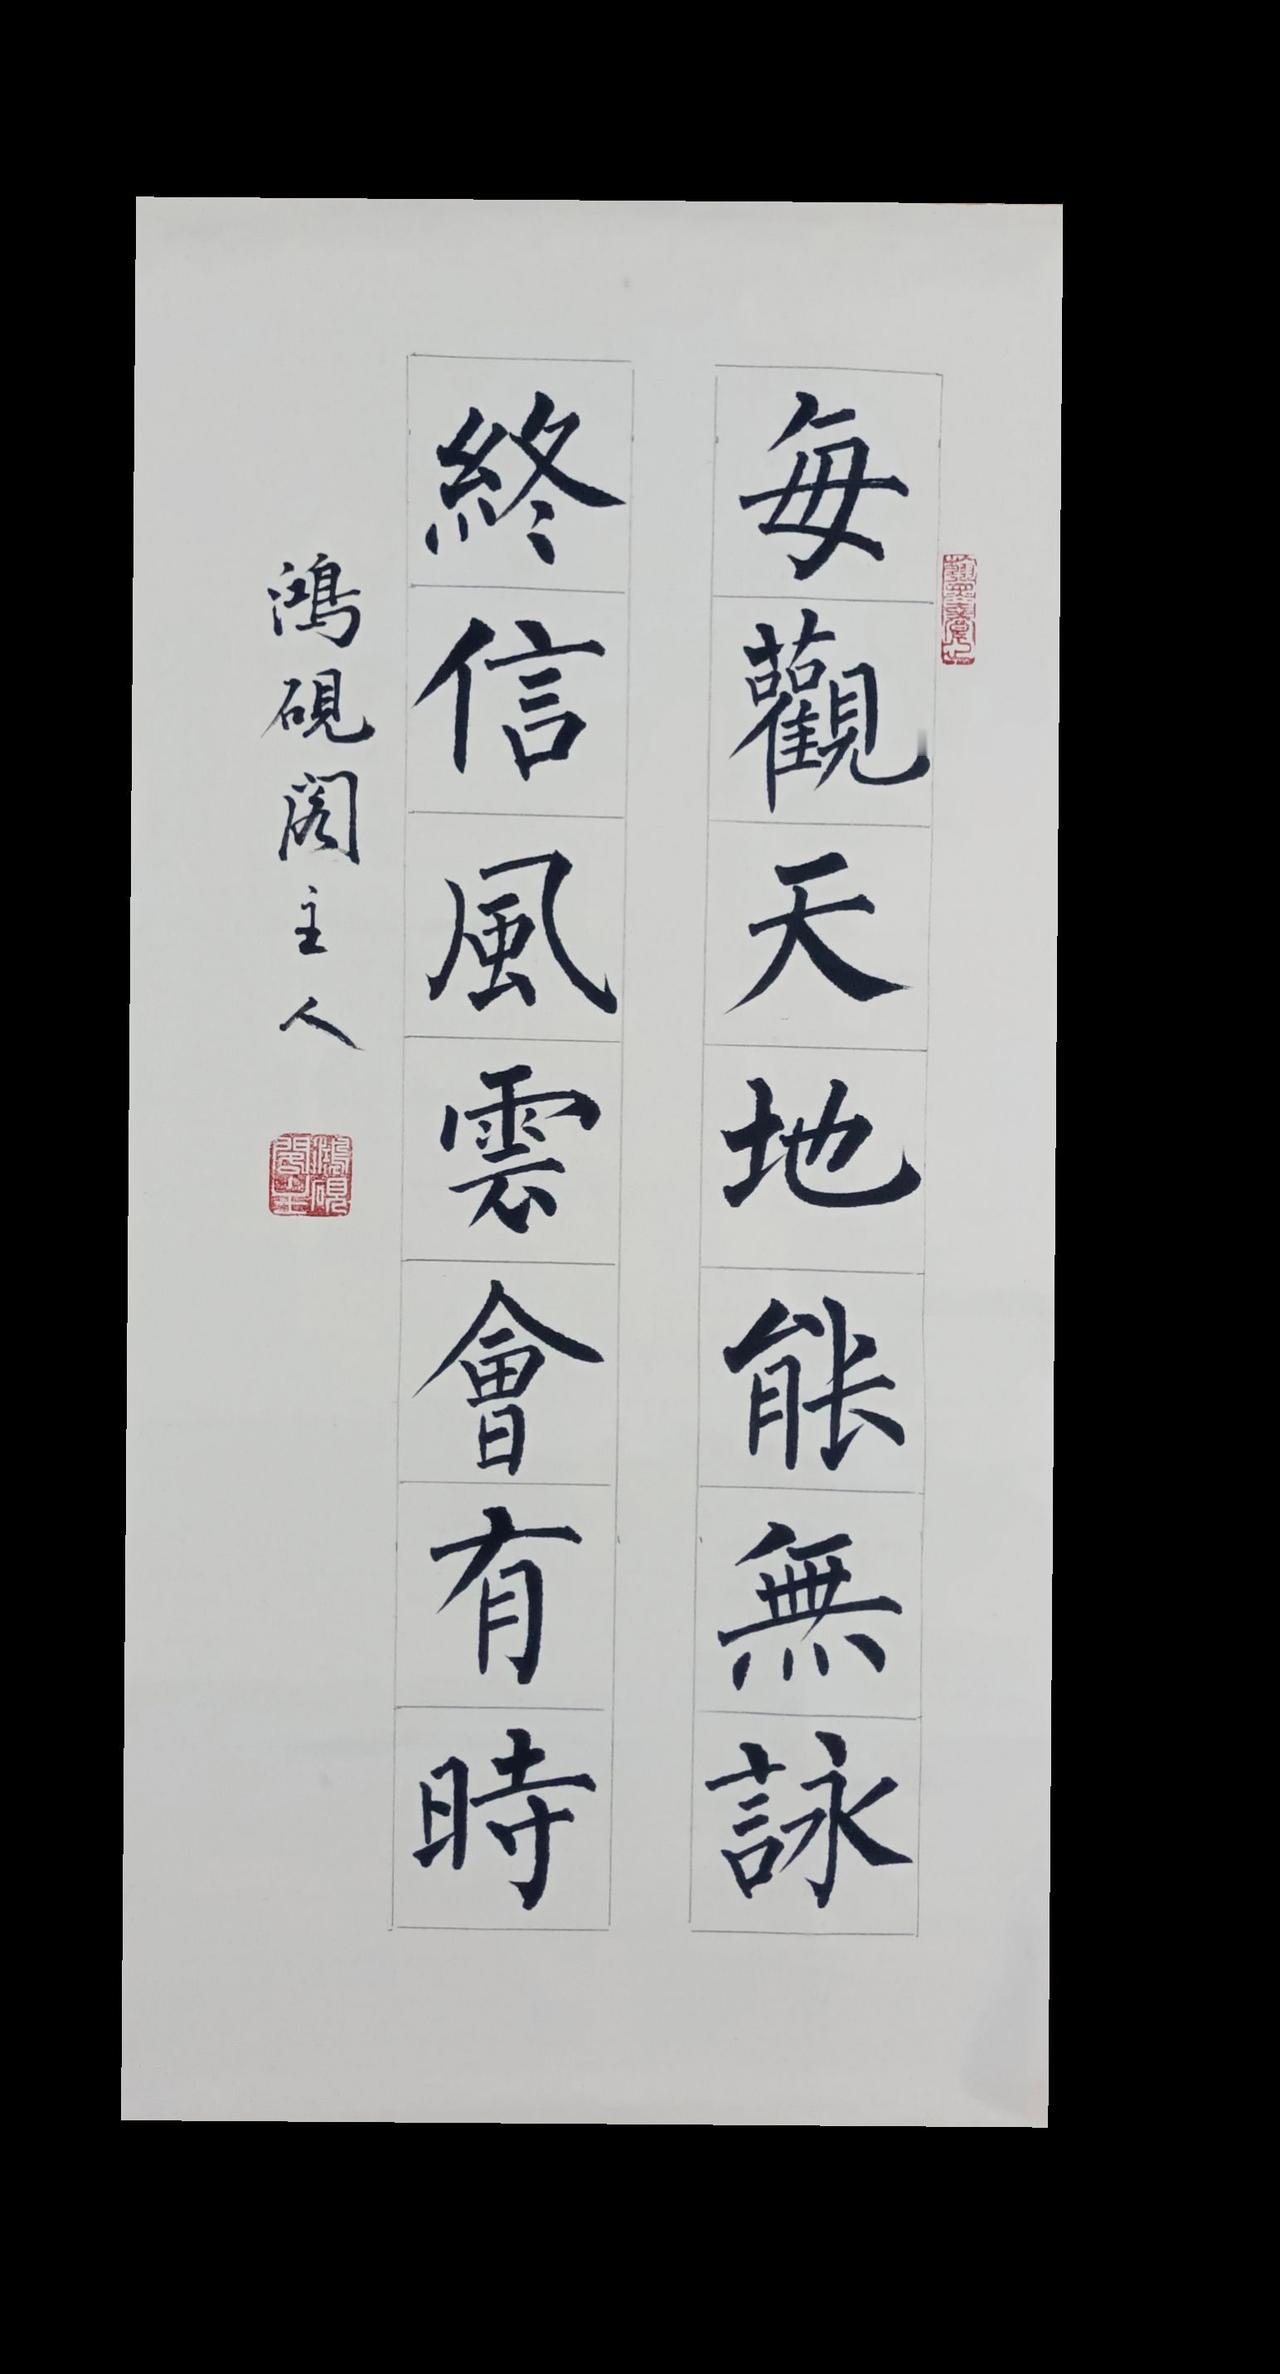 每觀天地能無詠
終信風雲會有時
鴻硯閣主人
鴻硯閣主